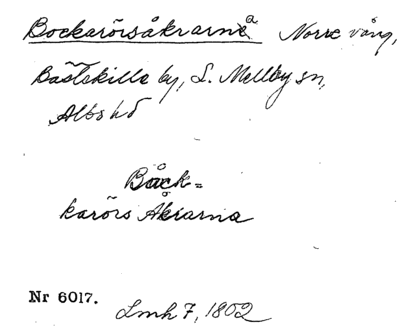 Bockarörsåkrarna Norre vång,
Bästekille by, S. Mellby sn,
Albs hd
Båck=
karörs Åkrarna
Nr 6017.
Lmh 7, 1802